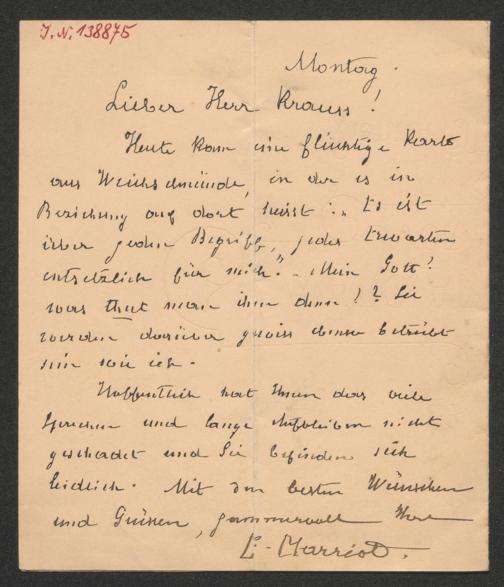 J. N. 138875
Montag.
Lieber Herr Krauss!
Heute kam eine flüchtige Karte
aus Weichselmünde, in der es in
Beziehung auf dort heisst: „Es ist
über jeden Begriff, jedes Erwarten
entsetzlich für mich." – Mein Gott!
was that man ihm denn!? Sie
werden darüber gewiss ebenso betrübt
sein wie ich.
Hoffentlich hat Ihnen das viele
Sprechen und lange Aufbleiben nicht
geschadet und Sie befinden sich
leidlich. Mit den besten Wünschen
und Grüssen, jammervoll Ihre
E. Marriot.